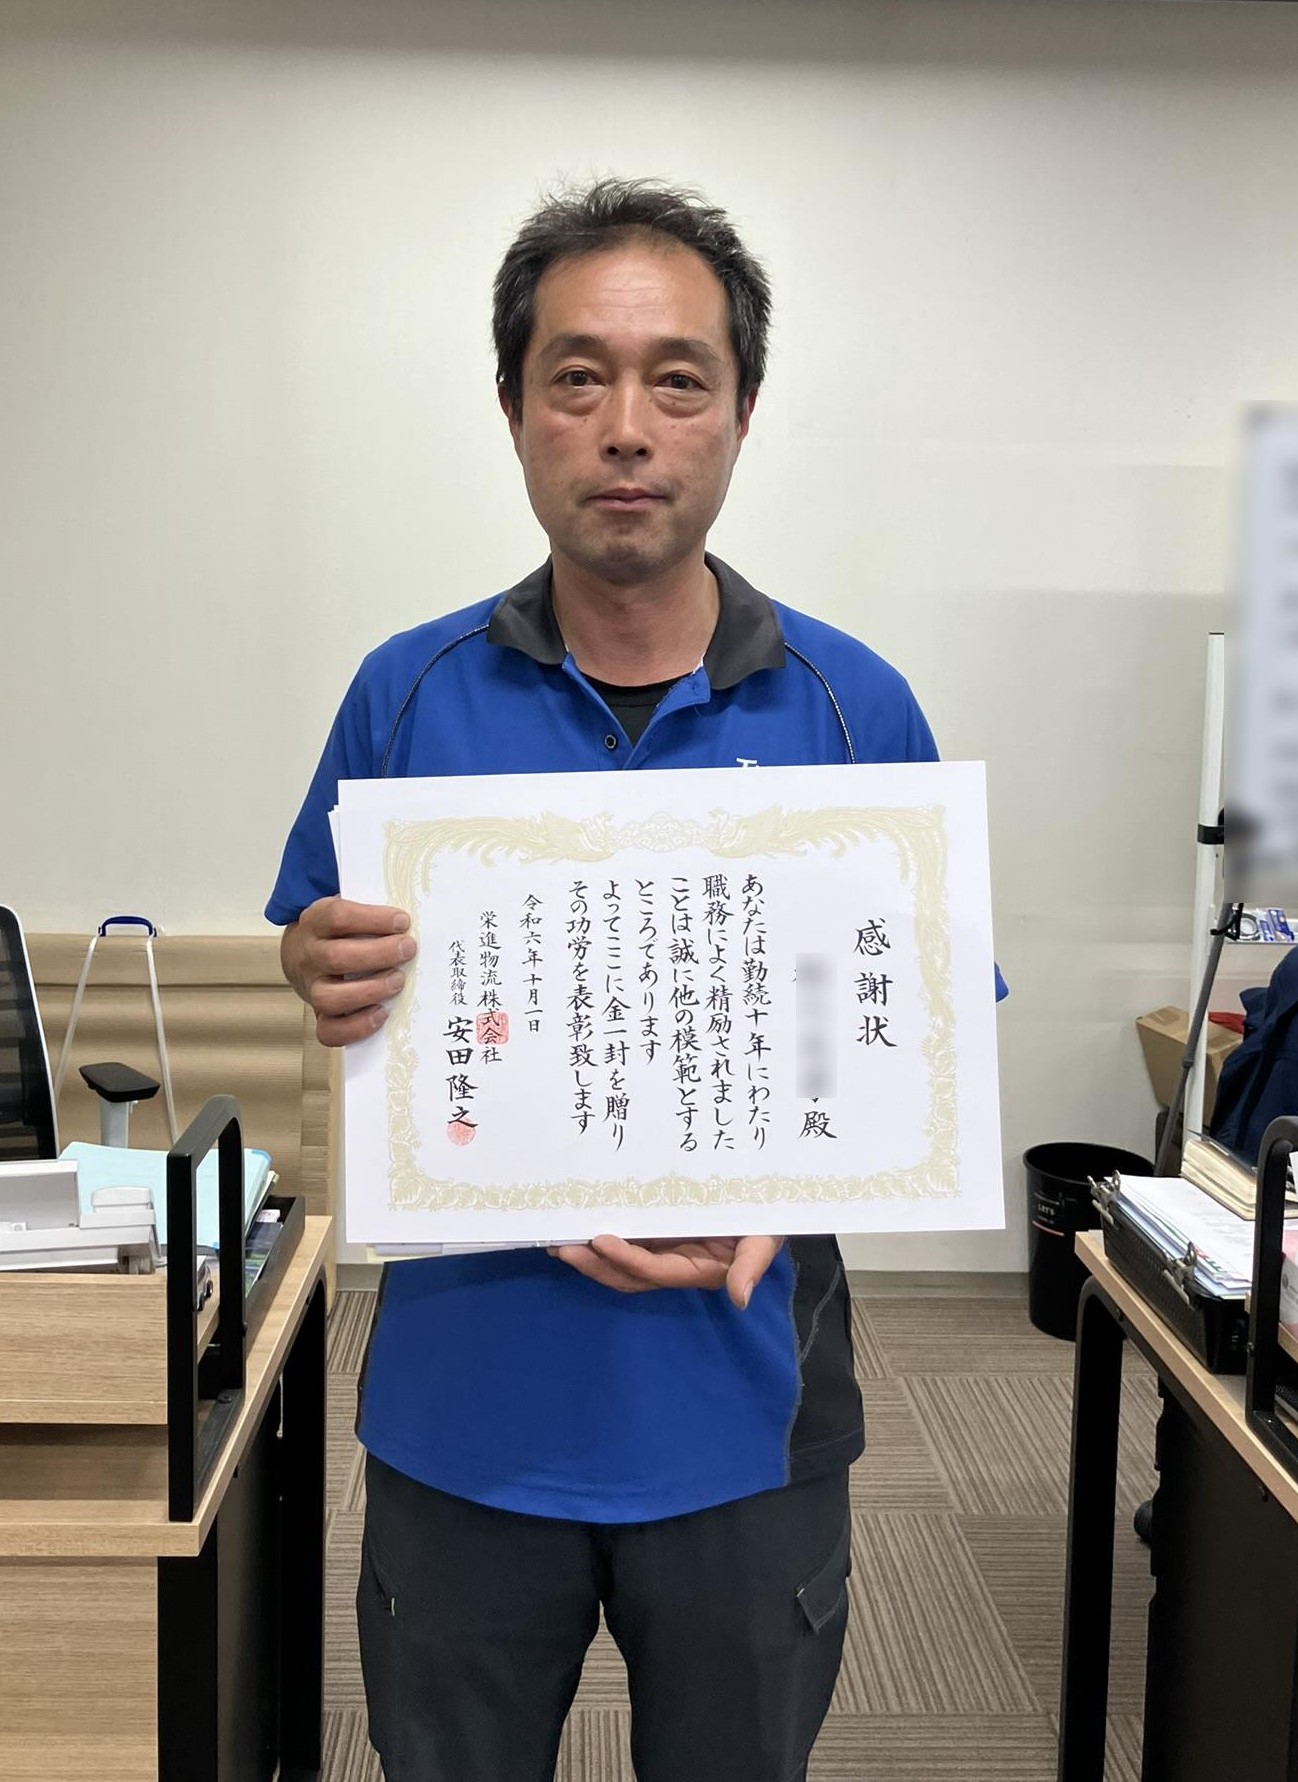 感謝状
殿
あなたは勤続十年にわたり
職務によく精励されました
ことは誠に他の模範とする
ところであります
よってここに金一封を贈り
その功労を表彰致します
令和六年十月一日
栄進物流株式会社
代表取締役 安田隆之